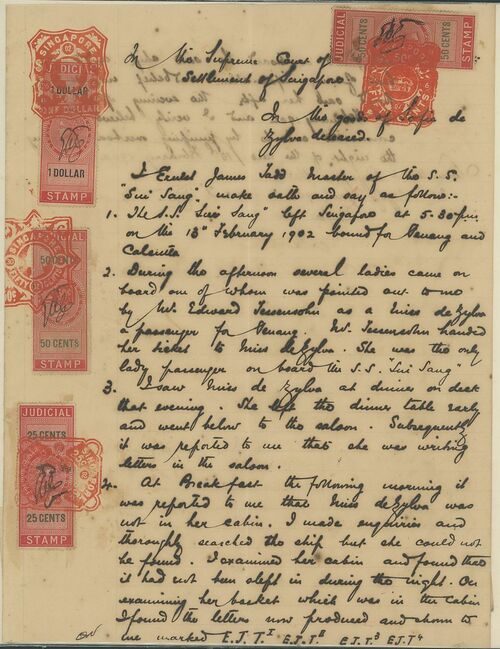 In the Supreme Court of
Settlement of Singapore
In the goods of Sofie de
Zylva deceased.
I Ernest James Tadd Master of the S.S.
"Sui Sang" make oath and say as follow:-
1. The S.S. "Sui Sang" left Singapore at 5.30 p.m.
on the 13th February 1902 bound for Penang and
Calcutta
2. During the afternoon several ladies came on
board one of whom was pointed out to me
by Mr. Edward Tessensohn as a Miss de Zylva
a passenger for Penang. Mr. Tessensohn handed
her ticket to Miss de Zylva. She was the only
lady passenger on board the S.S. "Sui Sang"
3. I saw Miss de Zylva at dinner on deck
that evening. She left the dinner table early
and went below to the saloon. Subsequently
it was reported to me that she was writing
letters in the saloon.
4. At Breakfast the following morning it
was reported to me that Miss de Zylva was
not in her cabin. I made enquiries and
thoroughly searched the ship but she could not
be found. I examined her cabin and found that
it had not been slept in during the night. On
examining her basket which was in the cabin
I found the letters now produced and shown to
me marked E.J.T.1 E.J.T.2 E.J.T.3 E.J.T.4
on
SINGAPORE
02
1 DOLLAR
ONE DOLLAR
1 DOLLAR
STAMP
JUDICIAL
50 CENTS
50 CENTS
STAMP
JUDICIAL
50 CENTS
50 CENTS
STAMP
JUDICIAL
25 CENTS
25 CENTS
STAMP